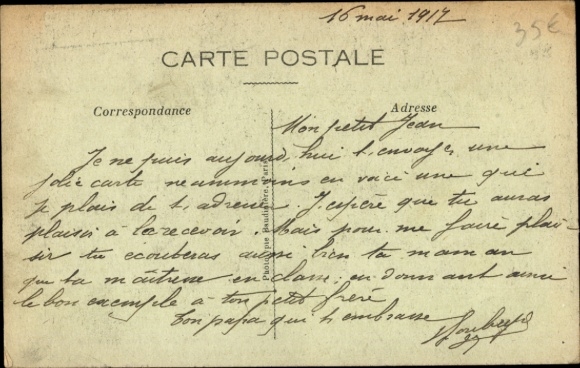 16 mai 1917
35€
CARTE POSTALE
Correspondance
Adresse
Mon petit Jean
Je ne puis aujourd'hui t'envoyer une
jolie carte neanmoins en voici une que
je plais de t'adresser. J'espéré que tu auras
plaisir à la recevoir. Mais pour me faire plai-
sir tu écouteras aussi bien ta maman
que ta maîtresse en classe; en donnant ainsi
le bon exemple a ton petit frère
Ton papa qui t'embrasse
Phototypie Baudinière, Paris